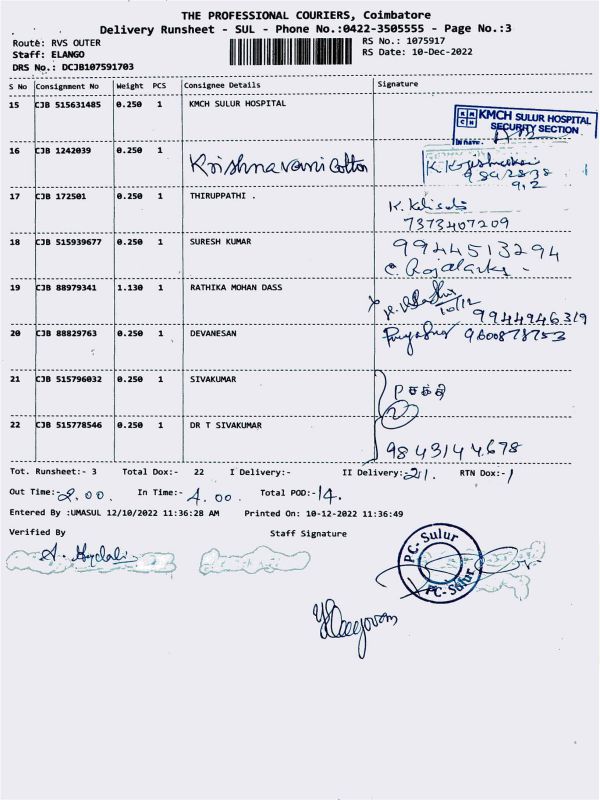 THE PROFESSIONAL COURIERS, Coimbatore
Delivery Runsheet - SUL - Phone No.:0422-3505555 - Page No.:3
Route: RVS OUTER
RS No.: 1075917
Staff: ELANGO
RS Date: 10-Dec-2022
DRS No.: DCJB107591703
S No Consignment No Weight PCS Consignee Details Signature
15 CJB 515631485 0.250 1 KMCH SULUR HOSPITAL
KMCH SULUR HOSPITAL
SECURITY SECTION
16 CJB 1242039 0.250 1 Krishnaveni Cotton
17 CJB 172501 0.250 1 THIRUPPATHI .
7373407209
18 CJB 515939677 0.250 1 SURESH KUMAR 9944513294
19 CJB 88979341 1.130 1 RATHIKA MOHAN DASS
10/12
9944946319
20 CJB 88829763 0.250 1 DEVANESAN 9600878753
21 CJB 515796032 0.250 1 SIVAKUMAR
P சக்தி
22 CJB 515778546 0.250 1 DR T SIVAKUMAR
9843144678
Tot. Runsheet:- 3 Total Dox:- 22 I Delivery:- II Delivery:- 21. RTN Dox:- 1
Out Time:- 2.00. In Time:- 4.00. Total POD:- 14.
Entered By :UMASUL 12/10/2022 11:36:28 AM Printed On: 10-12-2022 11:36:49
Verified By Staff Signature
PC-Sulur
PC-Sulur